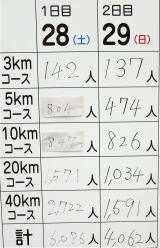 1日目 2日目
28(土) 29(日)
3km コース 142人 137人
5km コース 804人 474人
10km コース 847人 826人
20km コース 1,571人 1,034人
40km コース 2,722人 1,591人
計 6,086人 4,062人